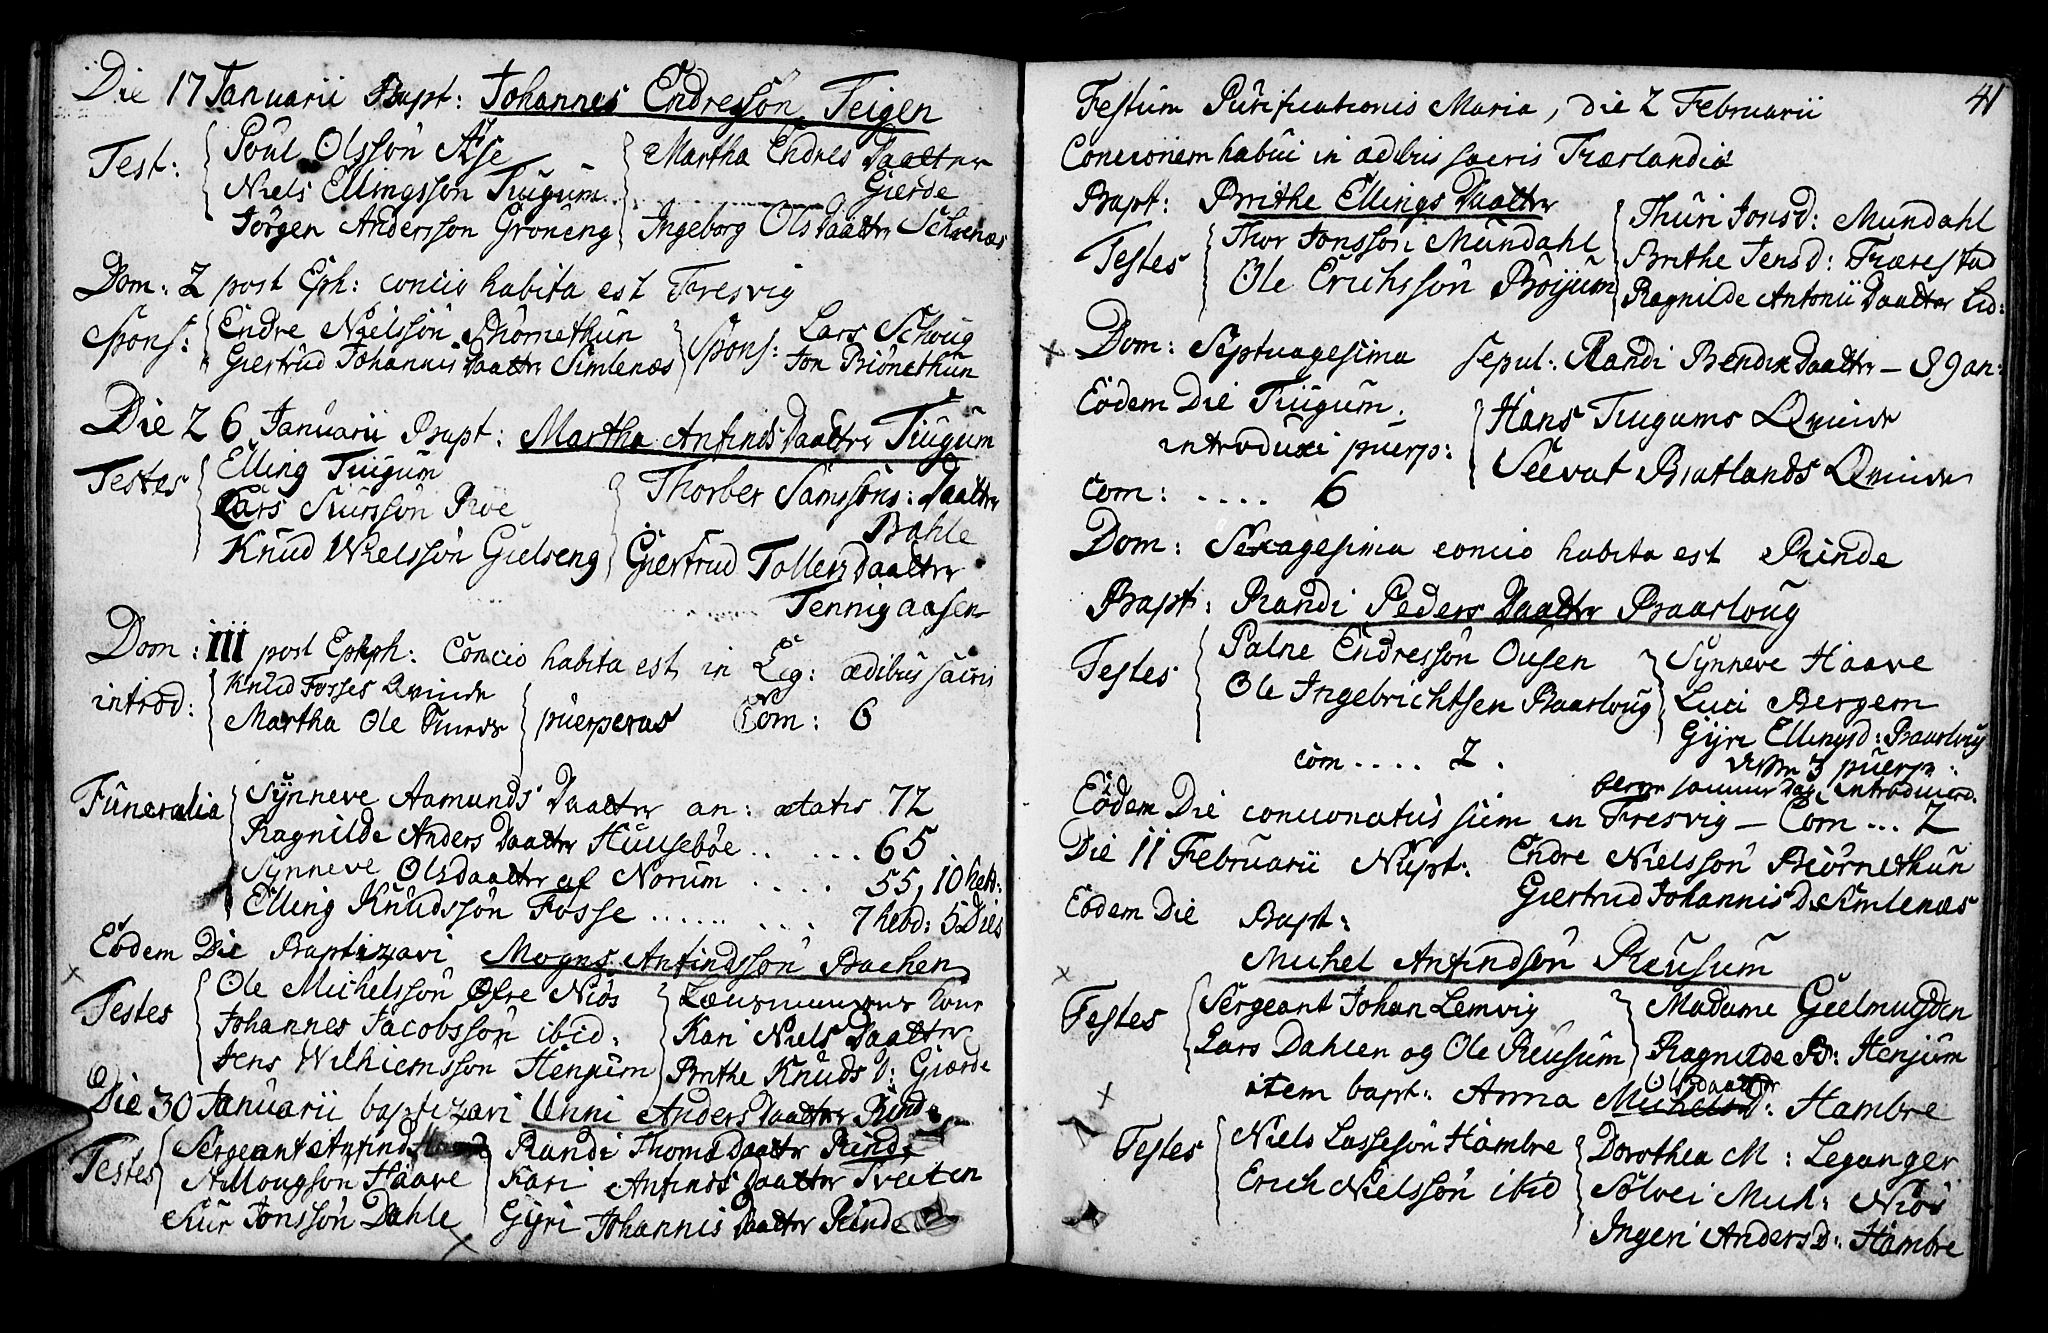 Die 17 Januarii Bapt: Johannes Endressön Teigen
Test: Poul Olssön Ase
Niels Ellingssön Tiugum
Jörgen Anderssön Gröneng
Martha Endres Daatter
Gierde
Ingeborg Olsdaatter
Dom: 2 post Eph: concio habita est Fresvig
Spons: Endre Nielssön
Giertrud Johannis Daatter Simlenæs
Spons: Lars Schoug
Jon Biönethun
Die 26 Januarii Bapt: Martha Anfinds Daatter Tiugum
Testes Elling Tiugum
Lars Siurssön Röe
Knud Nielssön Gielseng
Thorber Samssöns: Daatter
Dahle
Giertrud Tollers Daatter
Tennigaasen
Dom: III post Epiph: Concio habita est in Leg: ædibus sacris
introd: Knud Fosses Qvinde
Martha Ole
puerperas Com: 6
Funeralia Synneve Aamunds Daatter an: ætatis 72
Ragnilde Anders Daatter Huusebøe .. ... 65
Synneve Olsdaatter af Norum .... 55, 10 hebd:
Elling Knudssön Fosse ........ 7 hebd: 5 Dies
Eodem Die Baptizavi Mogns Anfindssön Bachen
Testes Ole Michelssön Øfre Niös
Johannes Jacobssön ibid:
Jens Wilhiemssön Henjum
Kari Niels Daatter
Brithe Knuds D: Giærde
Die 30 Januarii baptizavi Unni Anders Daatter Rinde
Testes Sergeant Anfind
Haave
Siur Jonssön Dahle
Randi Thomæ Daatter Rinde
Kari Anfinds Daatter Tveiten
Gÿri Johannis Daatter Rinde
41
Festum Purificationis Maria, die 2 Februarii
Concionem habui in ædibus sacris Fiærlandia
Bapt: Brithe Ellings Daatter
Testes Thor Jonssön Mundahl
Ole Erichssön Böijum
Thuri Jonsd: Mundahl
Brithe Jensd: Fiærestad
Ragnilde Antonii Daatter Lid:
Dom: Septuagesima sepul: Randi Bendix Daatter – 89 an:
Eodem Die Tiugum
introduxi puerp:
Hans Tiugums Qvinde
Seevat Bratlands Qvinde
Com: .... 6
Dom: Sexagesima concio habita est Rinde
Bapt: Randi Peders Daatter Baarloug
Testes Palne Endressön Ousen
Ole Ingebrichtsen Baarloug
Synneve Haave
Luci Bergem
Gÿri Ellingsd: Baarloug
com .... 2.
disse 3 puerp:
samme Dag introducerd.
Eodem Die concionatus sum in Fresvig – Com ... 2
Die 11 Februarii Nupt: Endre Nielssön Biörnethun
Giertrud Johannis D: Simlenæs
Eodem Die Bapt:
Michel Anfindsön Reusum
Testes Sergeant Johan Lemvig
Lars Dahlen og Ole Reusum
Madame Geelmuyden
Ragnilde B: Henjum
item bapt: Anna Michels D: Olsdaatter Hambre
Testes Niels Lassesön Hambre
Erich Nielssön ibid
Dorothea M: Leganger
Sölvei Mich: Niös
Ingeri Anders D: Hambre